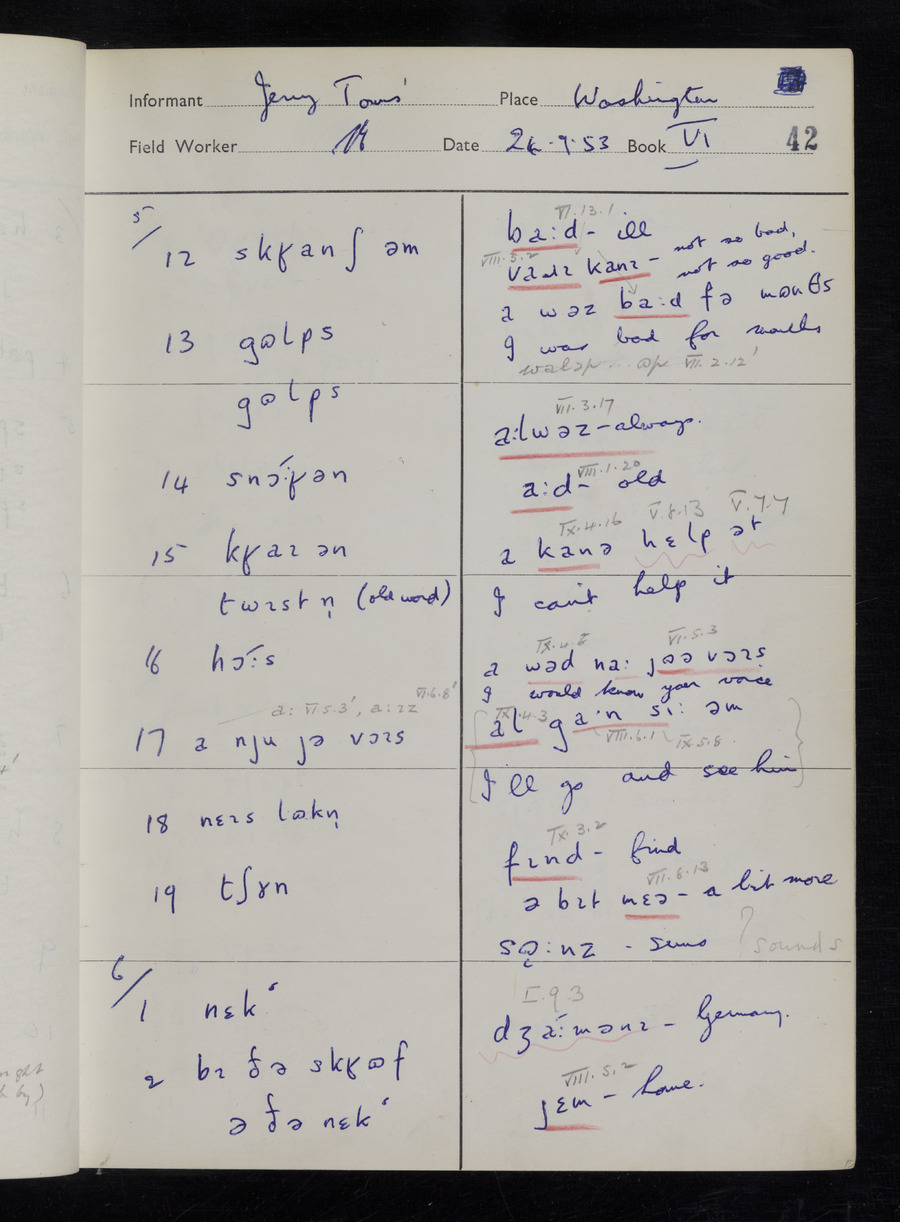 Informant Jerry Towns' Place Washington
Field Worker Date 24.9.53 Book VI 42
5/
12 skɣanʃ əm
13 gɷlps
gɷlps
14 snɔ́:ɣən
15 kɣaɪ ən
twɪstn̩ (old word)
16 hɔ́:s
a: VI 5.3', a:ɪz VI.6.8'
17 a nju jə vɔɪs
18 nɛɪs lɷkn̩
19 tʃɤn
6/
1 nɛk'
2 bɪ ðə skɣɷf
ə ðə nɛk'
VI.13.1
ba:d - ill
VIII.5.2
kanɪ - not so bad,
not so good.
a wəz ba:d fə mənθs
I was bad for months
walɔp... ɷp VII.2.12'
VII.3.17
a:lwəz - always.
VIII.1.20
a:d - old
IX.4.16 V.8.13 V.7.7
a kanə hɛlp ət
I can't help it
IX.4. VI.5.3
a wəd na: jɷə vɔɪs
I would know your voice
IX.4.3
al ga'n si: əm
VIII.6.1 IX.5.8
I'll go and see him
IX.3.2
fɪnd - find
VII.8.13
ə bɪt mɛə - a bit more
sɷ:nz - sums ? sounds
I.9.3
dʒá:mənɪ - Germany.
VIII.5.2
jɛm - home.